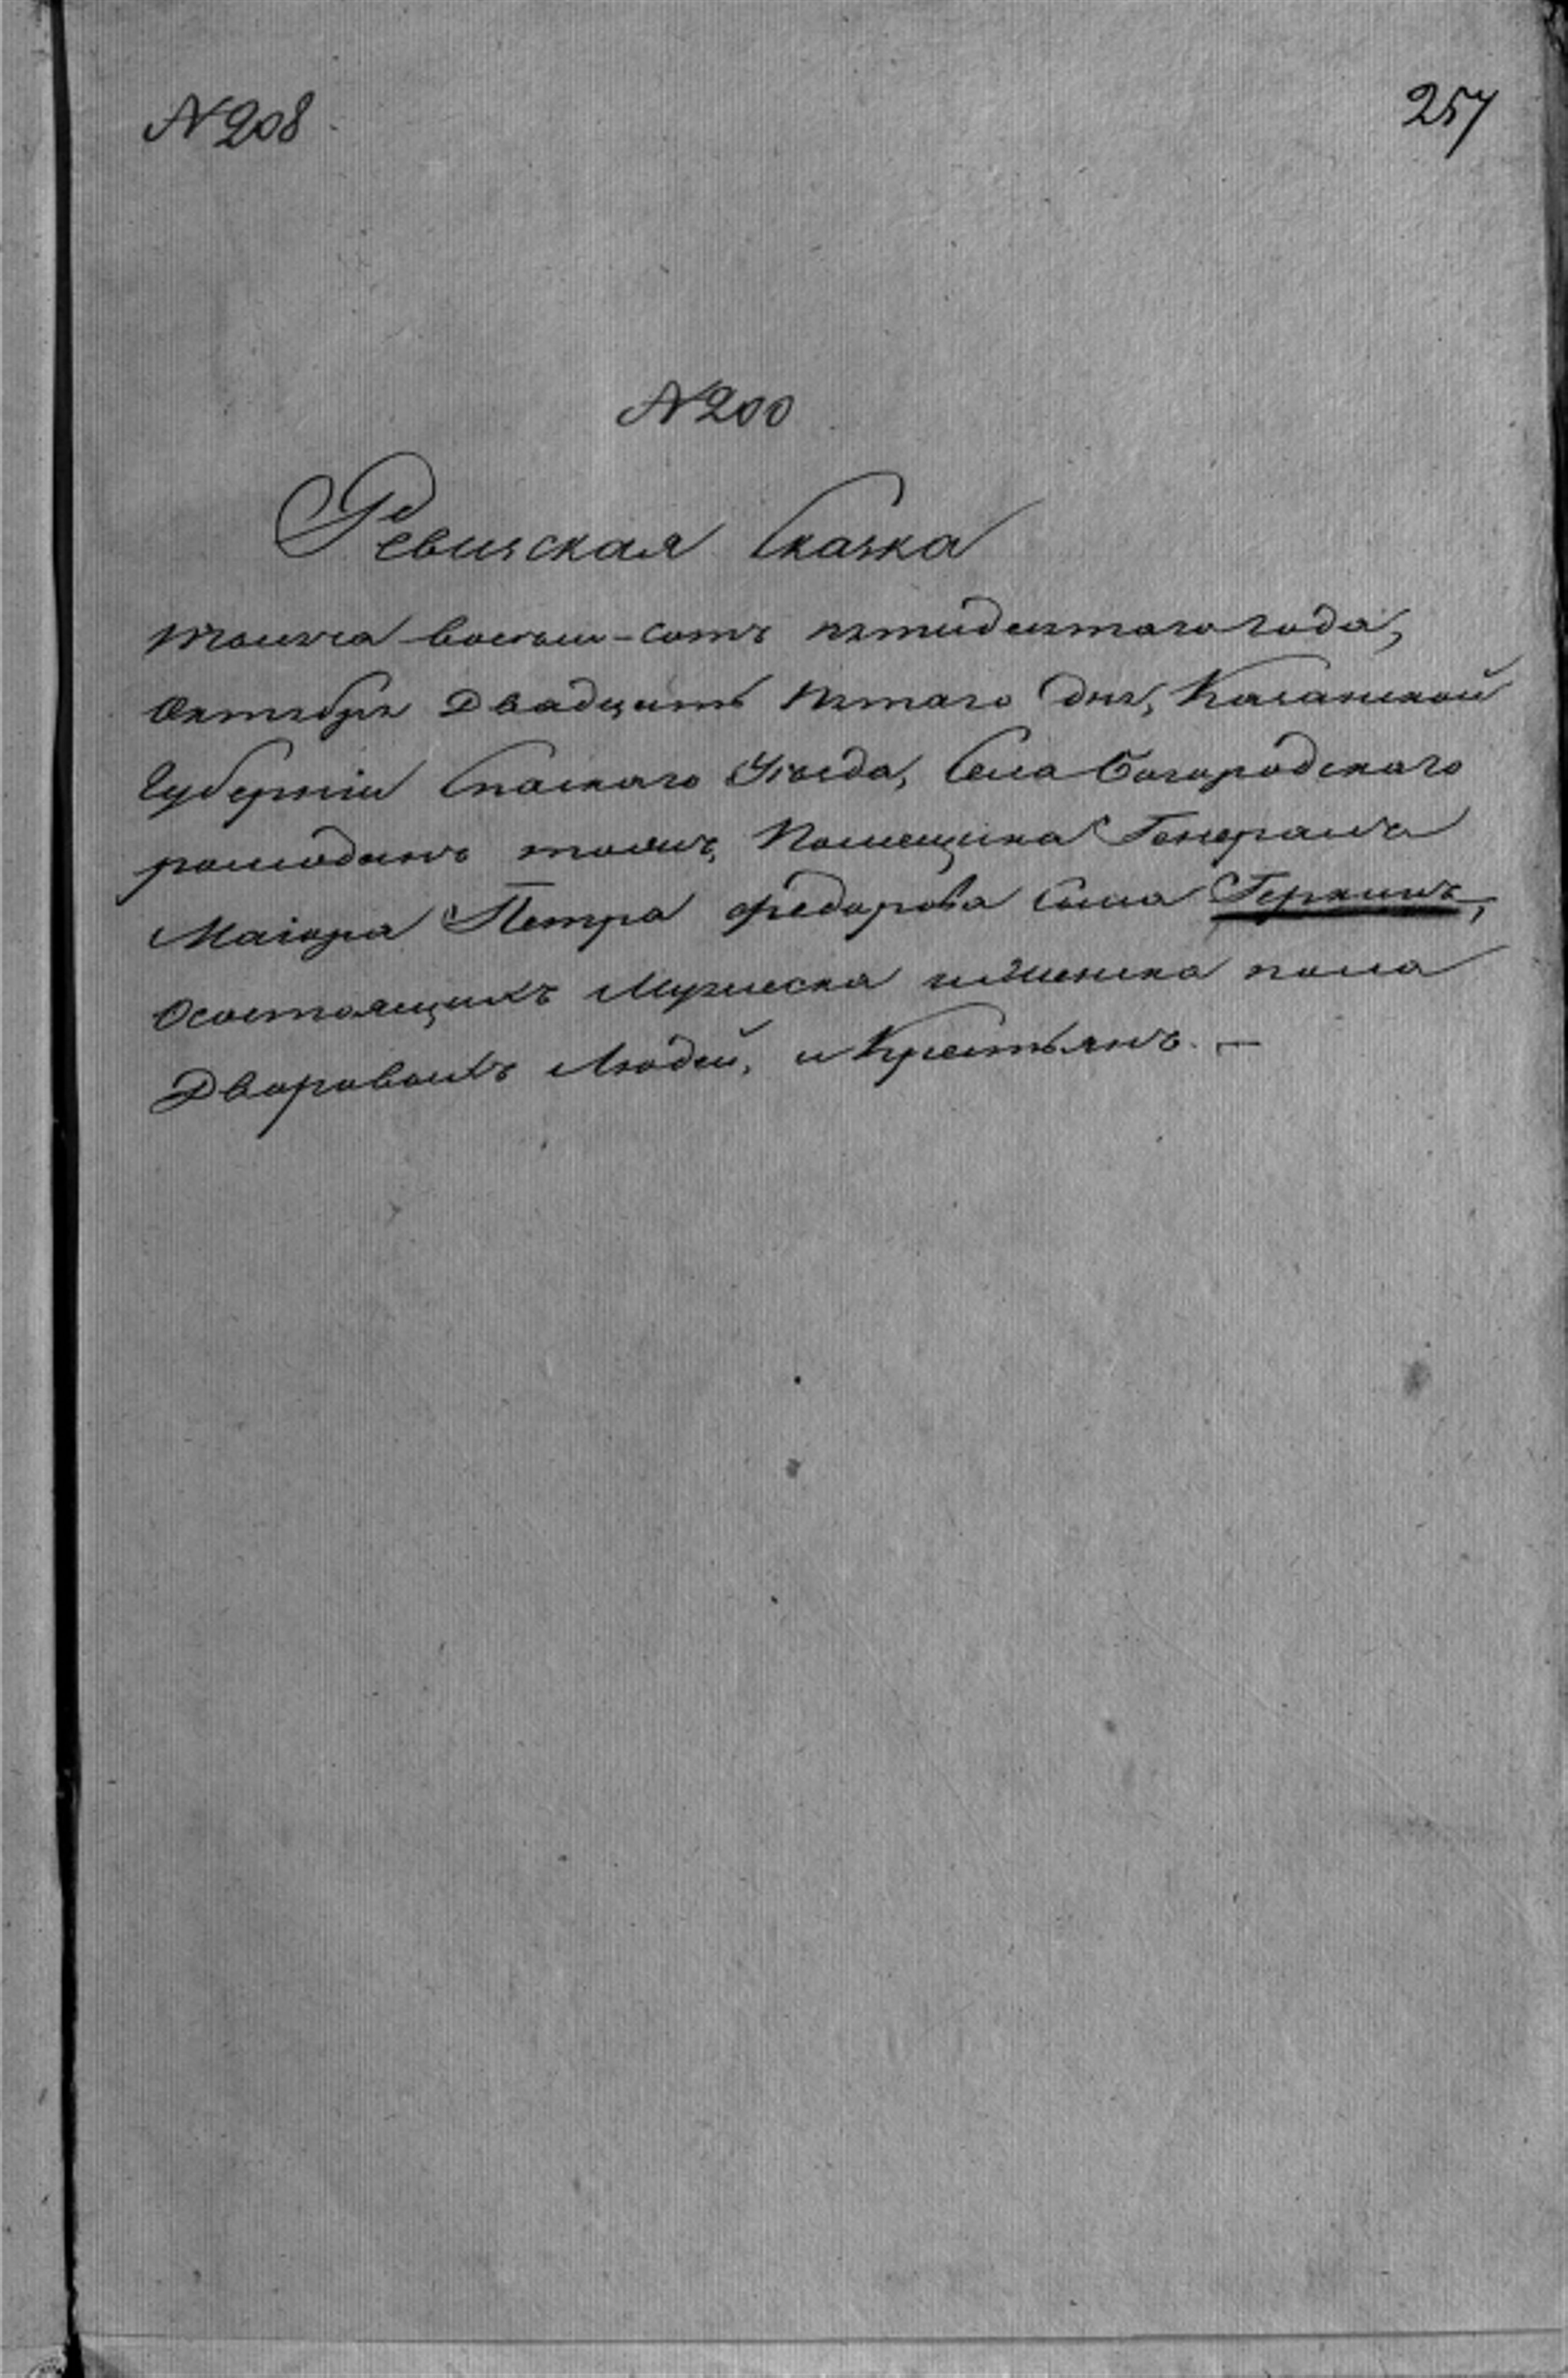 № 208
257
№ 200
Ревизская Сказка
Тысяча восемь-сотъ пятидесятого года,
Октября Двадцать пятаго дня, Казанской
Губерніи Спаскаго Уѣзда, Села Богородскаго
тожъ, Помещика Генералъ
Маіора Петра Федорова Сына
Осостоящихъ Мужеска и Женска пола
Дворовыхъ Людей, и Крестьянъ. —